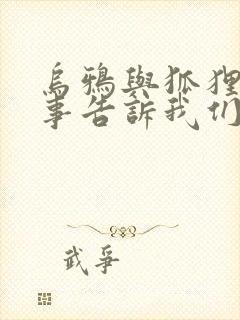 烏鴉與狐狸
事告訴我们
武爭